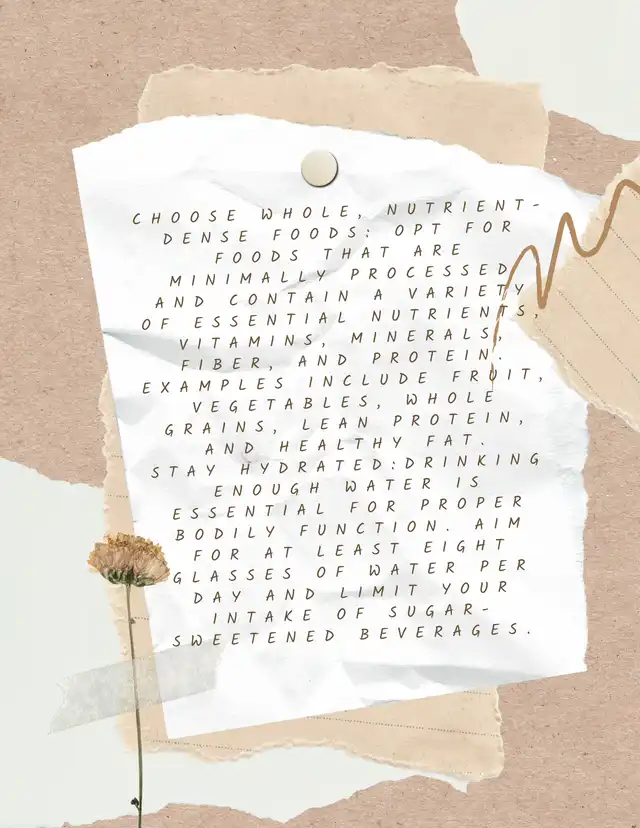 CHOOSE WHOLE, NUTRIENT-
DENSE FOODS: OPT FOR
FOODS THAT ARE
MINIMALLY PROCESSED
AND CONTAIN A VARIETY
OF ESSENTIAL NUTRIENTS,
VITAMINS, MINERALS,
FIBER, AND PROTEIN.
EXAMPLES INCLUDE FRUIT,
VEGETABLES, WHOLE
GRAINS, LEAN PROTEIN,
AND HEALTHY FAT.
STAY HYDRATED:DRINKING
ENOUGH WATER IS
ESSENTIAL FOR PROPER
BODILY FUNCTION. AIM
FOR AT LEAST EIGHT
GLASSES OF WATER PER
DAY AND LIMIT YOUR
INTAKE OF SUGAR-
SWEETENED BEVERAGES.